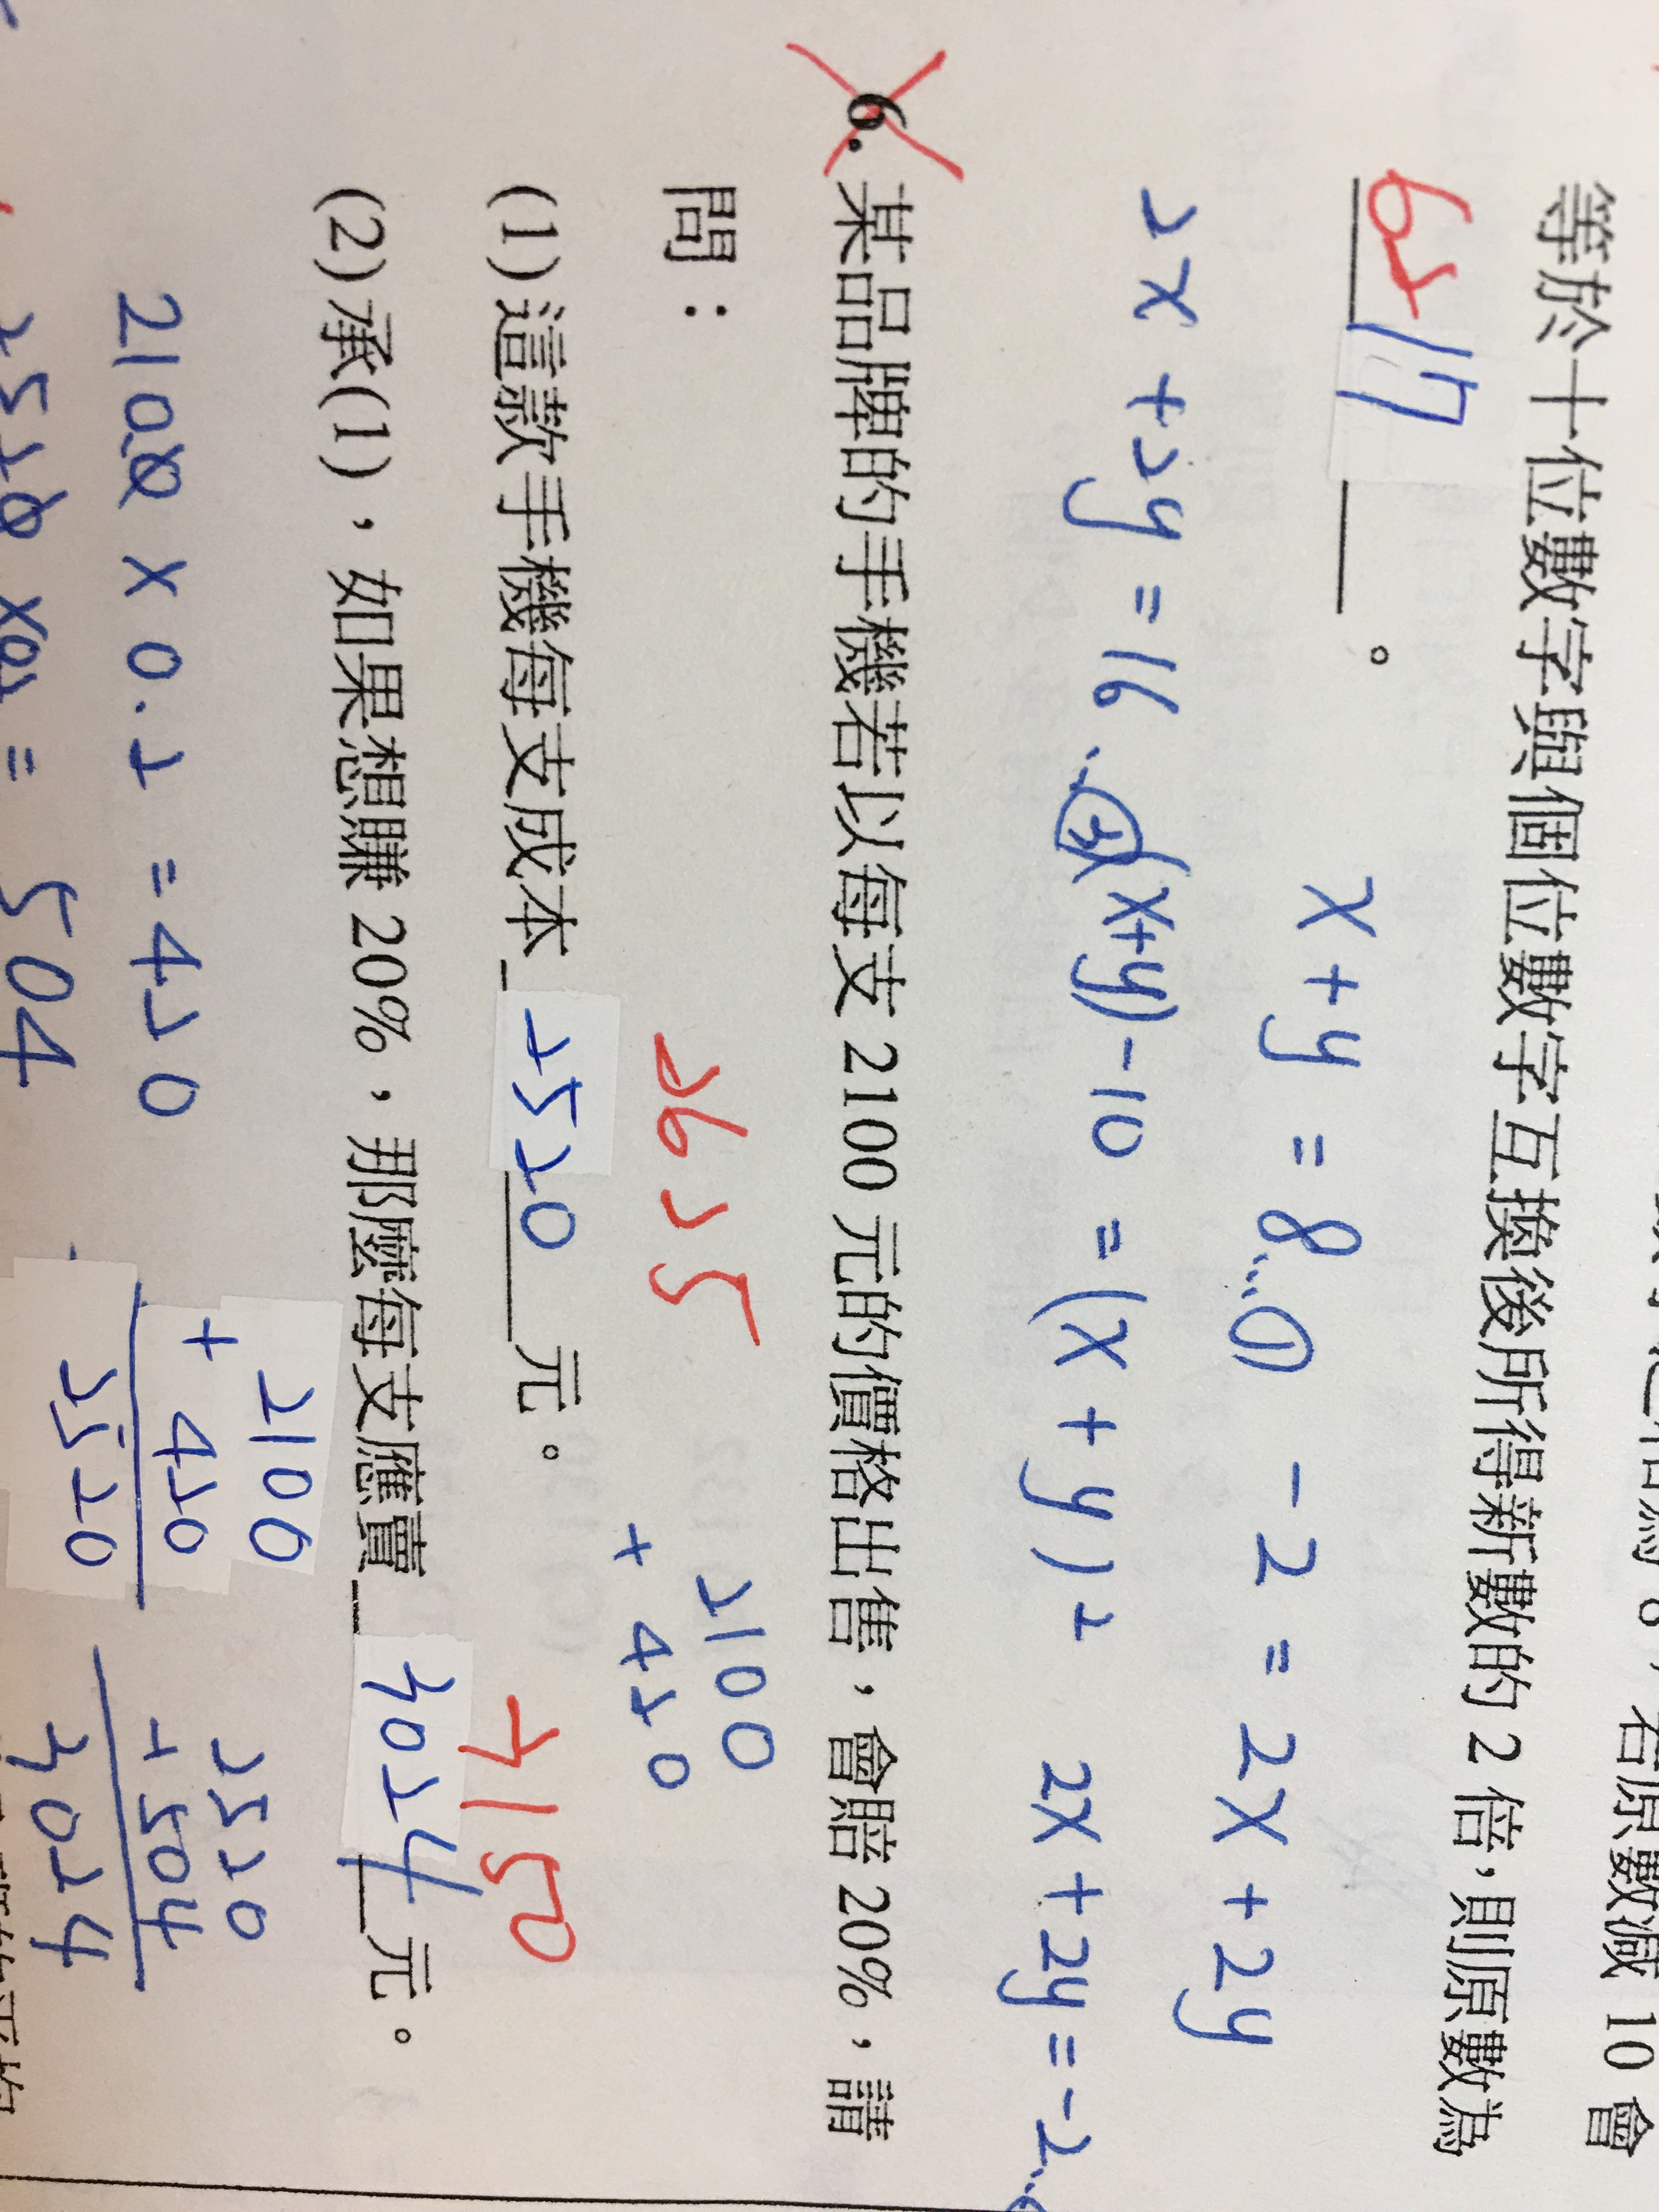 若原數減 10 會
等於十位數字與個位數字互換後所得新數的 2 倍,則原數為
62 17 。
x + y = 8 ...① -2 = 2x + 2y
2x + 2y = 16 ...③ (x+y)-10 = (x + y)2 2x + 2y = -2
6. 某品牌的手機若以每支 2100 元的價格出售,會賠 20%,請
問:
2625
2100
+ 420
(1) 這款手機每支成本 2520 元。
3150
(2) 承(1),如果想賺 20%,那麼每支應賣 3024 元。
2100 × 0.2 = 420
2100
+ 420
2520
2520
+ 504
3024
= 504